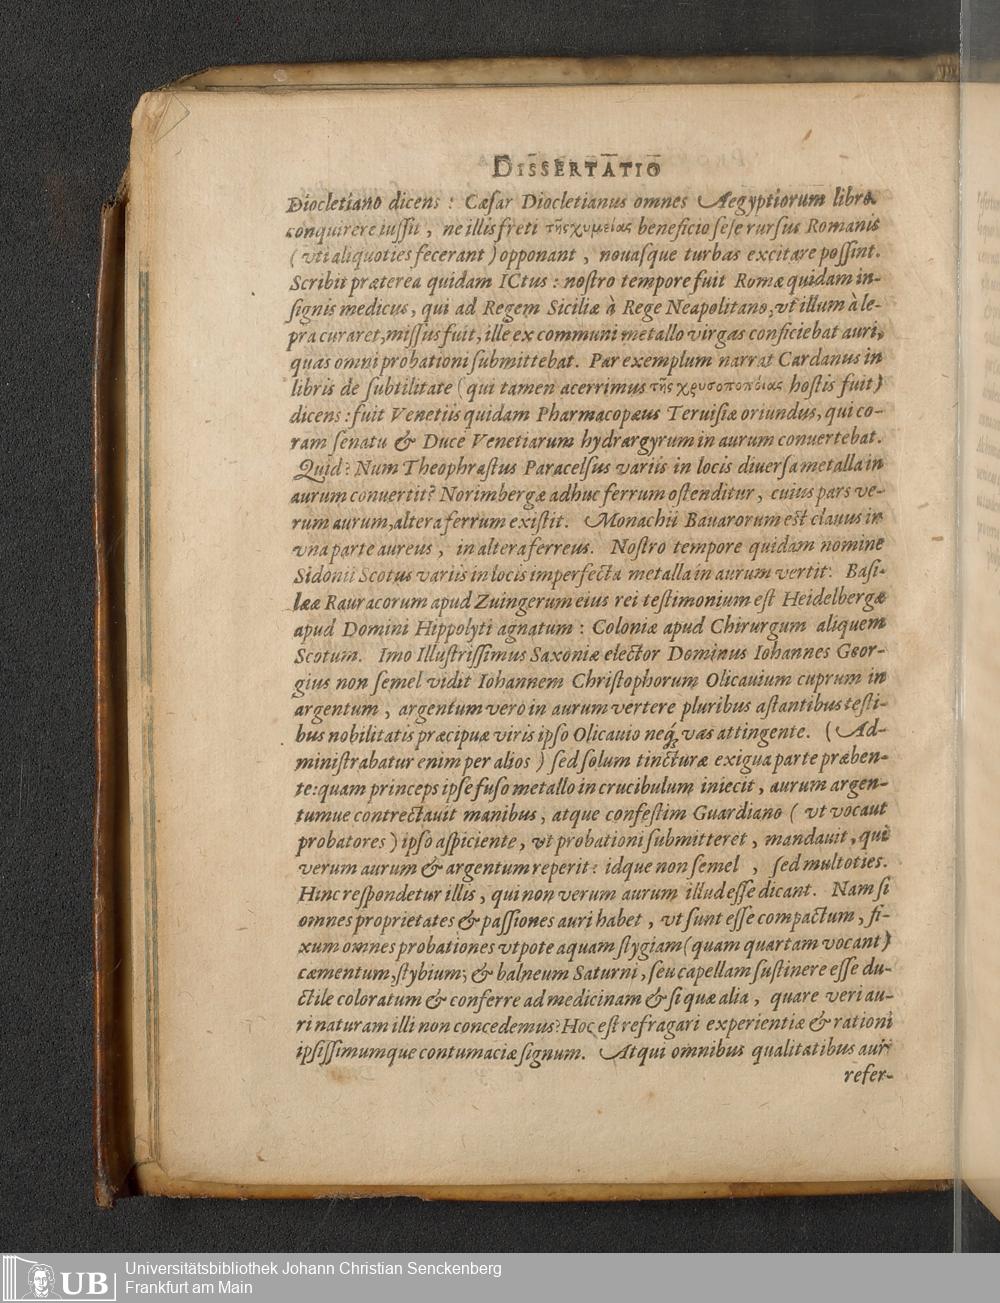 DISSERTATIO
Diocletiano dicens : Cæſar Diocletianus omnes Aegyptiorum libros
conquirere iuſſit , ne illis freti τῆς χυμείας beneficio ſeſe rurſus Romanis
( vti aliquoties fecerant ) opponant , nouaſque turbas excitare poſſint.
Scribit præterea quidam ICtus : noſtro tempore fuit Romæ quidam in-
ſignis medicus, qui ad Regem Siciliæ à Rege Neapolitano, vt illum à le-
pra curaret, miſſus fuit, ille ex communi metallo virgas conficiebat auri,
quas omni probationi ſubmittebat. Par exemplum narrat Cardanus in
libris de ſubtilitate ( qui tamen acerrimus τῆς hoſtis fuit )
dicens : fuit Venetiis quidam Pharmacopæus Teruiſiæ oriundus, qui co-
ram ſenatu & Duce Venetiarum hydrargyrum in aurum conuertebat.
Quid? Num Theophraſtus Paracelſus variis in locis diuerſa metalla in
aurum conuertit? Norimbergæ adhuc ferrum oſtenditur , cuius pars ve-
rum aurum, altera ferrum exiſtit. Monachii Bauarorum eſt clauus in
vna parte aureus , in altera ferreus. Noſtro tempore quidam nomine
Sidonii Scotus variis in locis imperfecta metalla in aurum vertit: Baſi-
leæ Rauracorum apud Zuingerum eius rei teſtimonium eſt Heidelbergæ
apud Domini Hippolyti agnatum : Coloniæ apud Chirurgum aliquem
Scotum. Imo Illuſtriſſimus Saxoniæ elector Dominus Iohannes Geor-
gius non ſemel vidit Iohannem Chriſtophorum Olicauium cuprum in
argentum , argentum vero in aurum vertere pluribus aſtantibus teſti-
bus nobilitatis præcipuæ viris ipſo Olicauio neq; vas attingente. ( Ad-
miniſtrabatur enim per alios ) ſed ſolum tincturæ exigua parte præben-
te: quam princeps ipſe fuſo metallo in crucibulum iniecit , aurum argen-
tumue contrectauit manibus , atque confeſtim Guardiano ( vt vocant
probatores ) ipſo aſpiciente , vt probationi ſubmitteret , mandauit, qui
verum aurum & argentum reperit : idque non ſemel , ſed multoties.
Hinc reſpondetur illis, qui non verum aurum illud eſſe dicant. Nam ſi
omnes proprietates & paſſiones auri habet , vt ſunt eſſe compactum, fi-
xum omnes probationes vtpote aquam ſtygiam (quam quartam vocant)
cæmentum, ſtybium; & balneum Saturni, ſeu capellam ſuſtinere eſſe du-
ctile coloratum & conferre ad medicinam & ſi quæ alia , quare veri au-
ri naturam illi non concedemus? Hoc eſt refragari experientiæ & rationi
ipſiſſimumque contumaciæ ſignum. Atqui omnibus qualitatibus auri
refer-
UB
Universitätsbibliothek Johann Christian Senckenberg
Frankfurt am Main